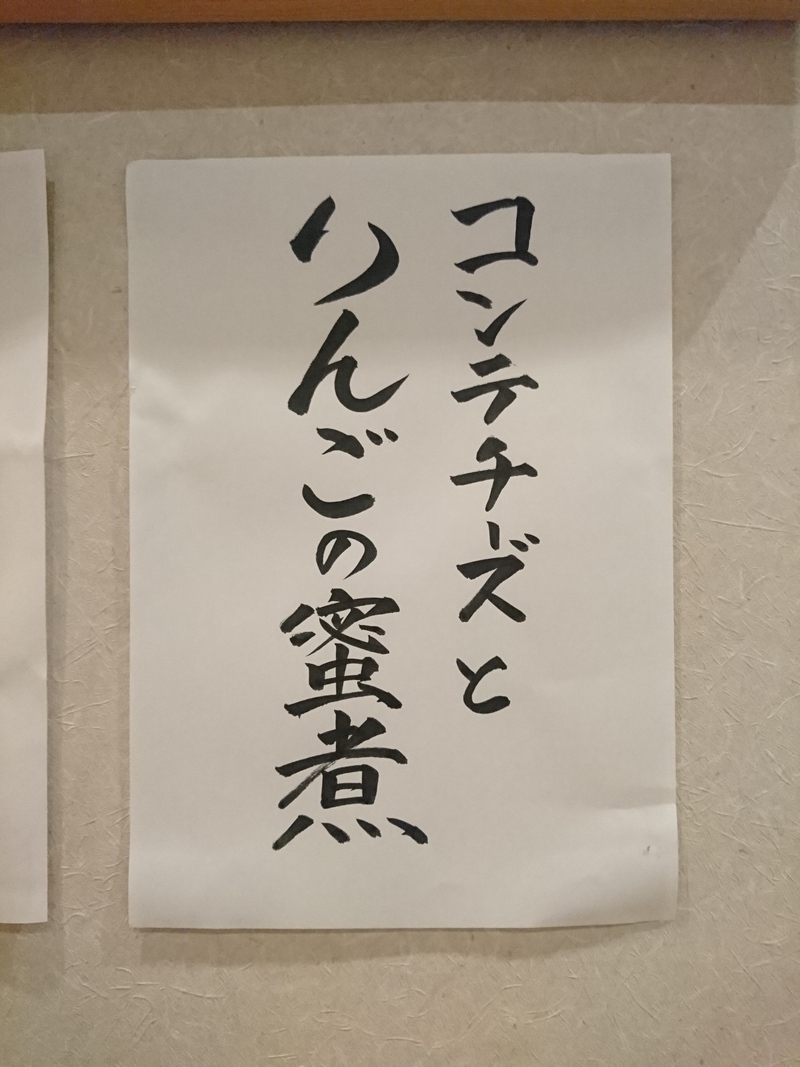 コンテチーズと
りんごの蜜煮